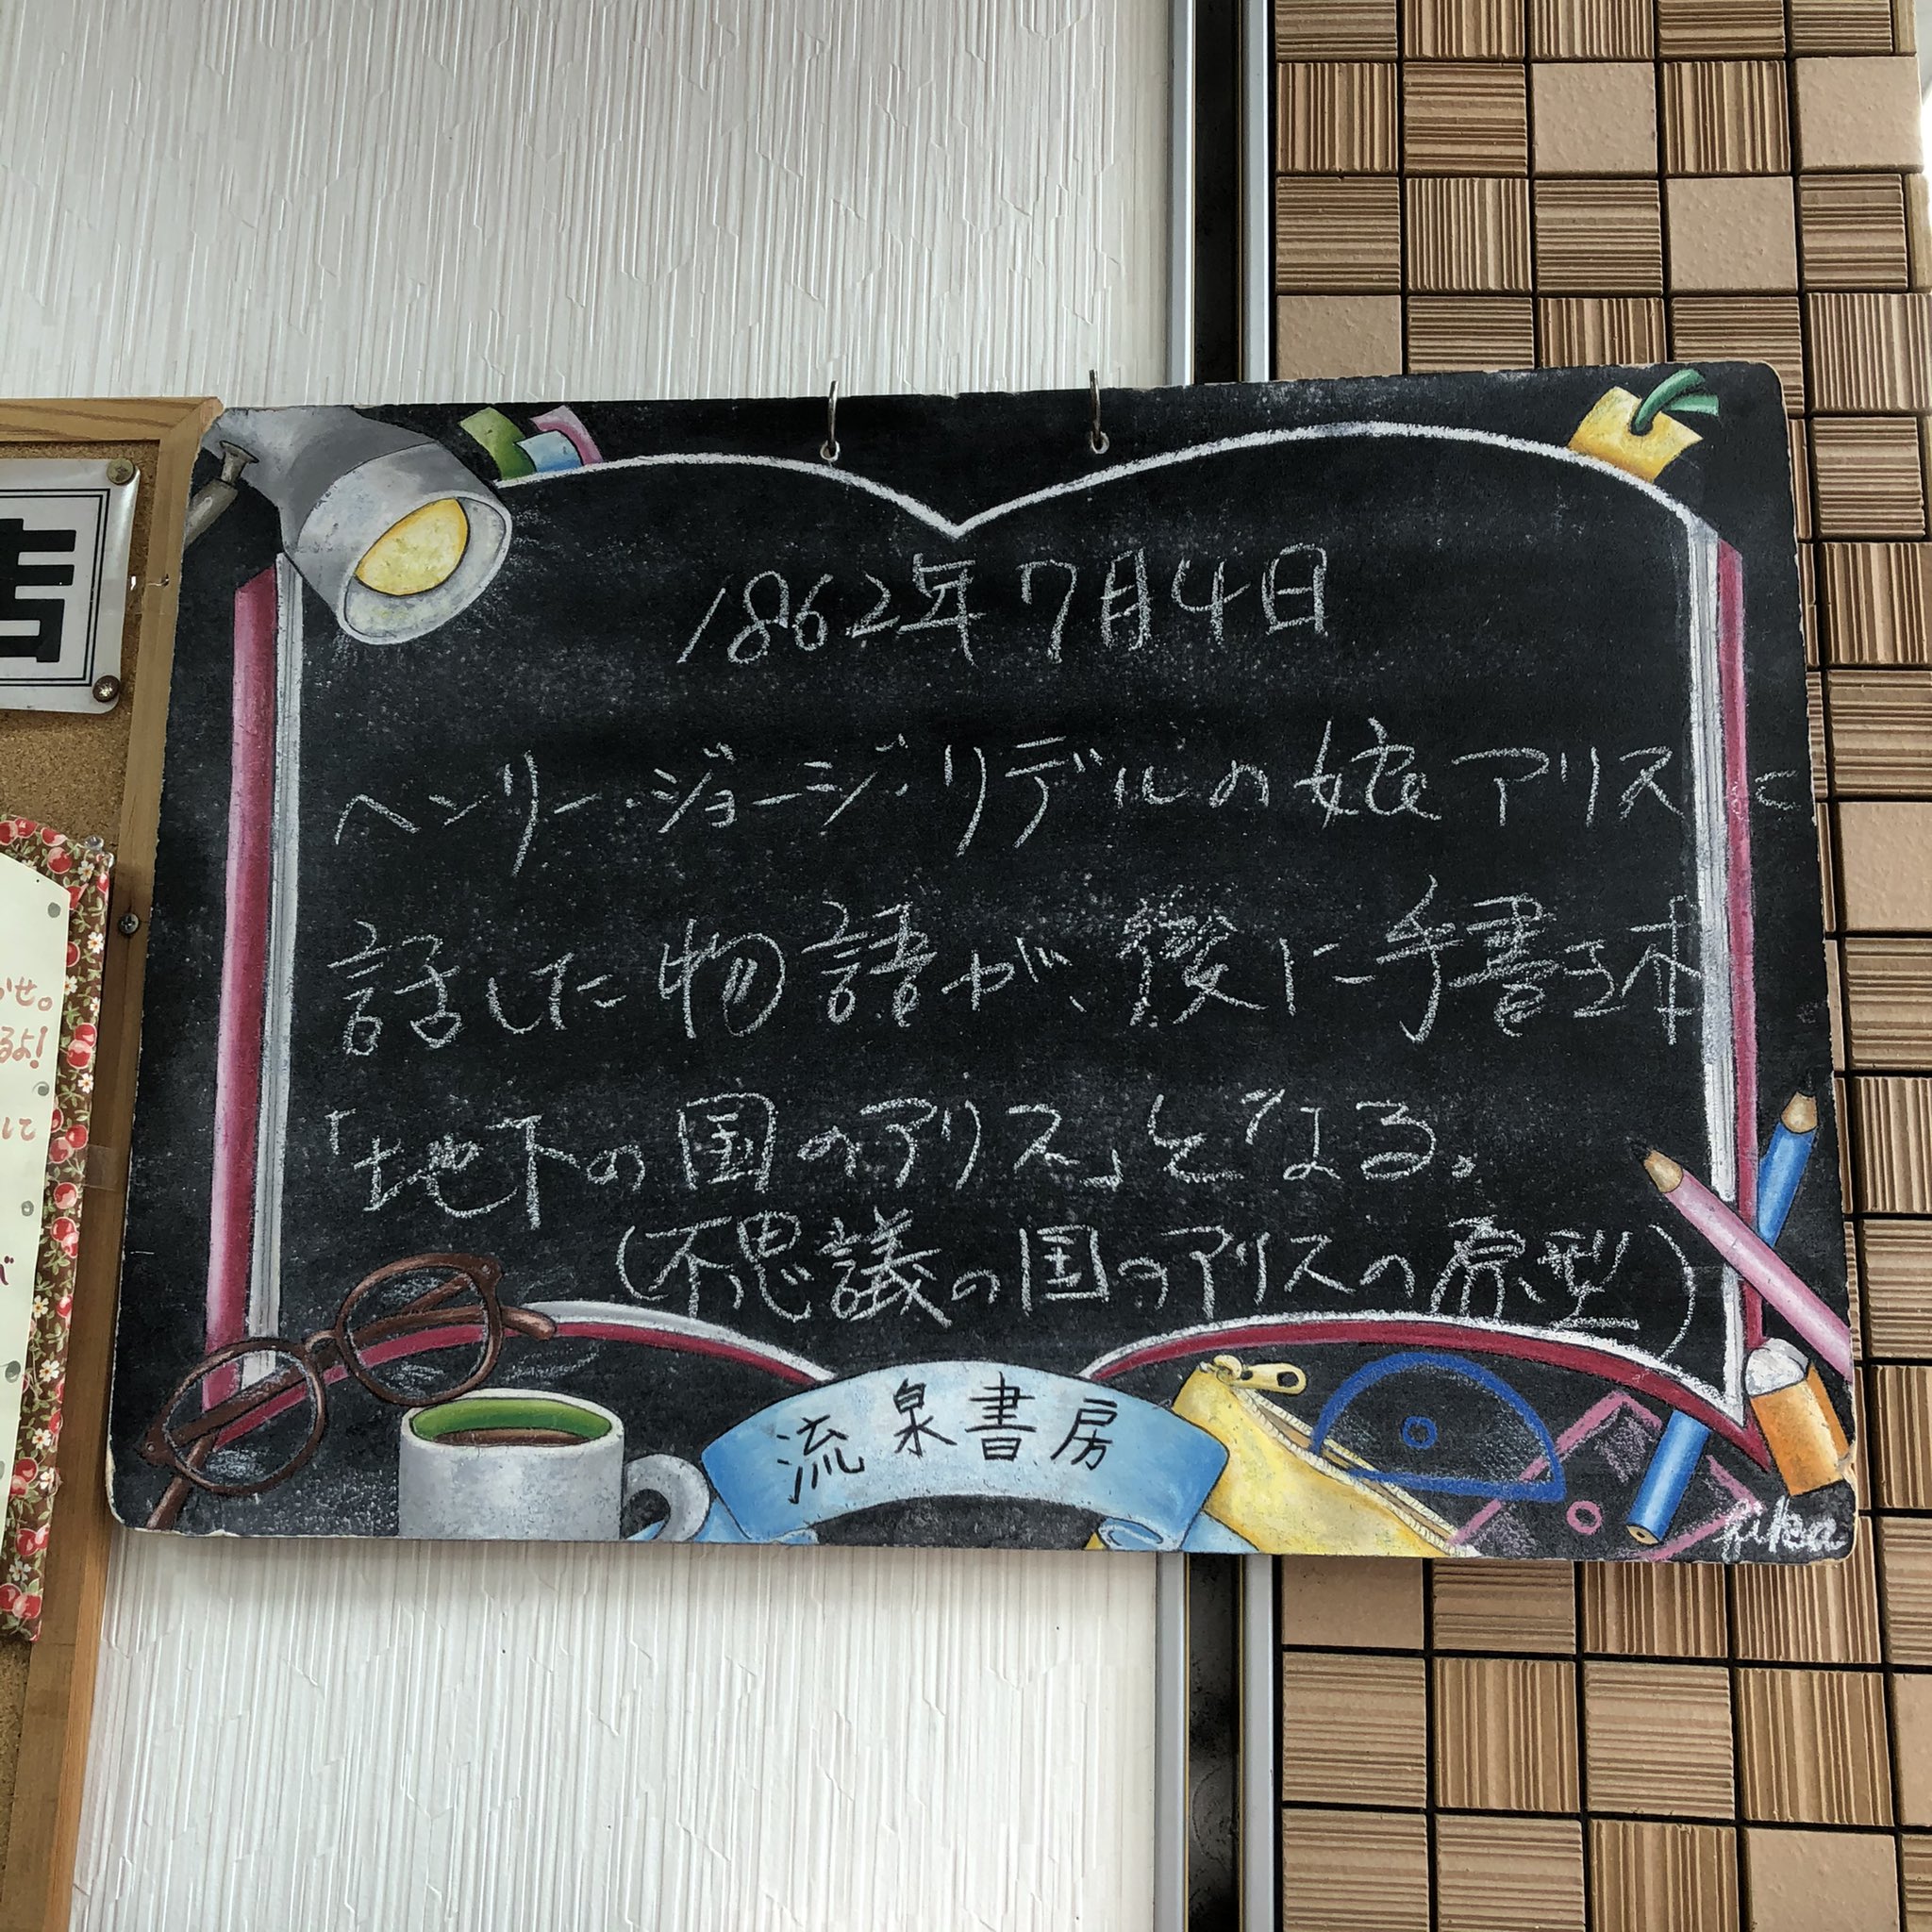 1862年7月4日
ヘンリー・ジョージ・リデルの娘アリスに
話した物語が、後に手書き本
「地下の国のアリス」となる。
(不思議の国のアリスの原型)
流泉書房
fuka
かせ。
るよ!
して
が